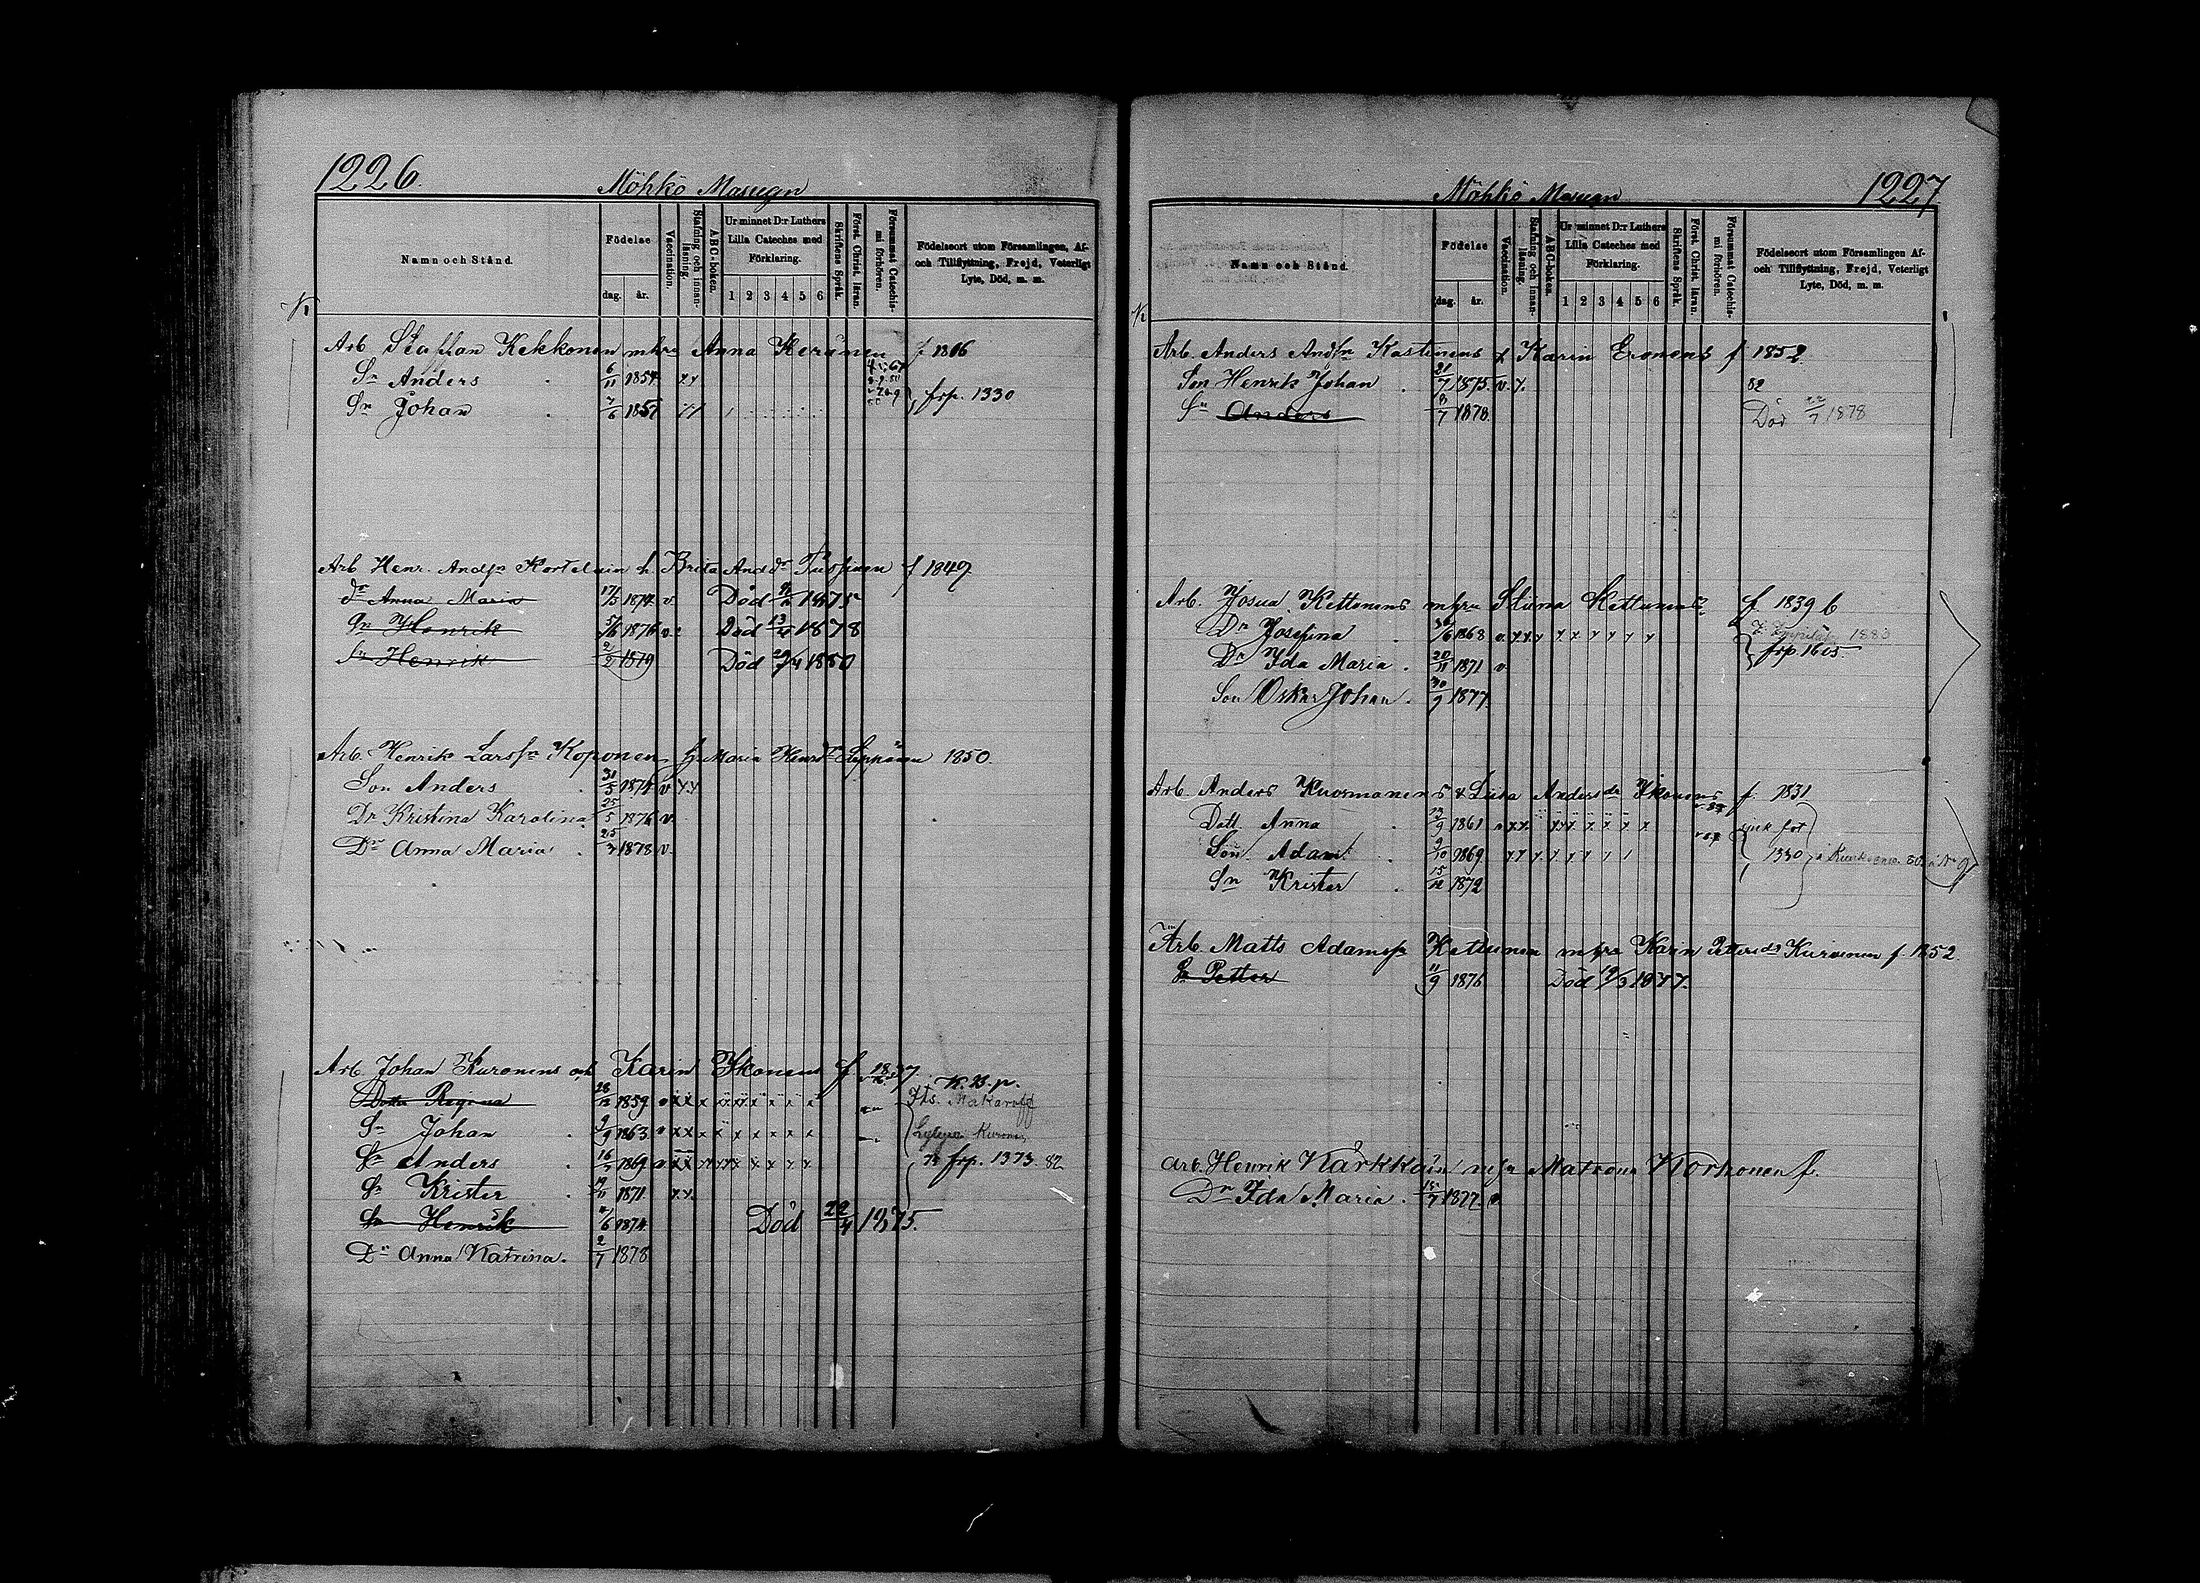 1226.
Möhkö Masugn
Namn och Stånd.
Födelse
dag. år.
Vaccination.
Stafning och innan-läsning.
ABC-boken.
Ur minnet D:r Luthers Lilla Cateches med Förklaring.
1 2 3 4 5 6
Skriftens Språk.
Först. Christ. läran.
Försummat Catechis-mi förhören.
Födelseort utom Församlingen, Af- och Tillflyttning, Frejd, Veterligt Lyte, Död, m. m.
Arb. Staffan Kekkonen m hru Anna Keränen f 1816
Sn Anders 6/11 1854
Sn Johan 7/6 1857 frp. 1330
Arb Henr. Andsn Kortelain h. Brita And dr f 1849
dr Anna Maria 17/5 1874 v Död 1875
Sn Henrik 5/6 1876 v Död 1878
Sn Henrik 2/2 1879 Död 1880
Arb. Henrik Larssn Koponen h. Maria Henrdr Seppänen 1850
Son Anders 31/5 1874 v
Dr Kristina Karolina 25/5 1876 v.
Dr Anna Maria 25/3 1878 v.
Arb. Johan Kuronens och Karin Ikonens f. 1837
K. B. p.
Dotter Regina 28/12 1859 Makaroff
Sn Johan 1863
Sn Anders 1869 frp. 1373 82
Sn Krister 1871
Sn Henrik 1874 Död 22/4 1875.
Dr Anna Katrina. 2/7 1878
1227
Möhkö Masugn
Namn och Stånd.
Födelse
dag. år.
Vaccination.
Stafning och innan-läsning.
ABC-boken.
Ur minnet D:r Luthers Lilla Cateches med Förklaring.
1 2 3 4 5 6
Skriftens Språk.
Först. Christ. läran.
Försummat Catechis-mi förhören.
Födelseort utom Församlingen Af- och Tillflyttning, Frejd, Veterligt Lyte, Död, m. m.
Arb. Anders Andsn Kastinens & Karin Eronens f 1852
Son Henrik Johan 21/7 1875 v. 82
Sn Anders 1878. Död 22/7 1878
Arb. Josua Kettunens m hru Stina Kettunens f. 1839
Dr Josefina 1868 1883
Dr Ida Maria 20/11 1871 v frp 1605
Son Oskar Johan 30/9 1877
Arb. Anders Kuosmanens & Lisa Anders dr Ikonens f. 1831
Dott Anna 1861
Son Adam 9/10 1869 1330
Sn Krister 15/12 1872
Arb. Matts Adamsn Kettunen m hru Karin Petters dr Kurvinen f. 1852
Sn Petter 11/9 1876 Död 19/3 1877.
Arb. Henrik Kärkkäin m hr Matrona Korhonen f.
Dr Ida Maria. 15/7 1877